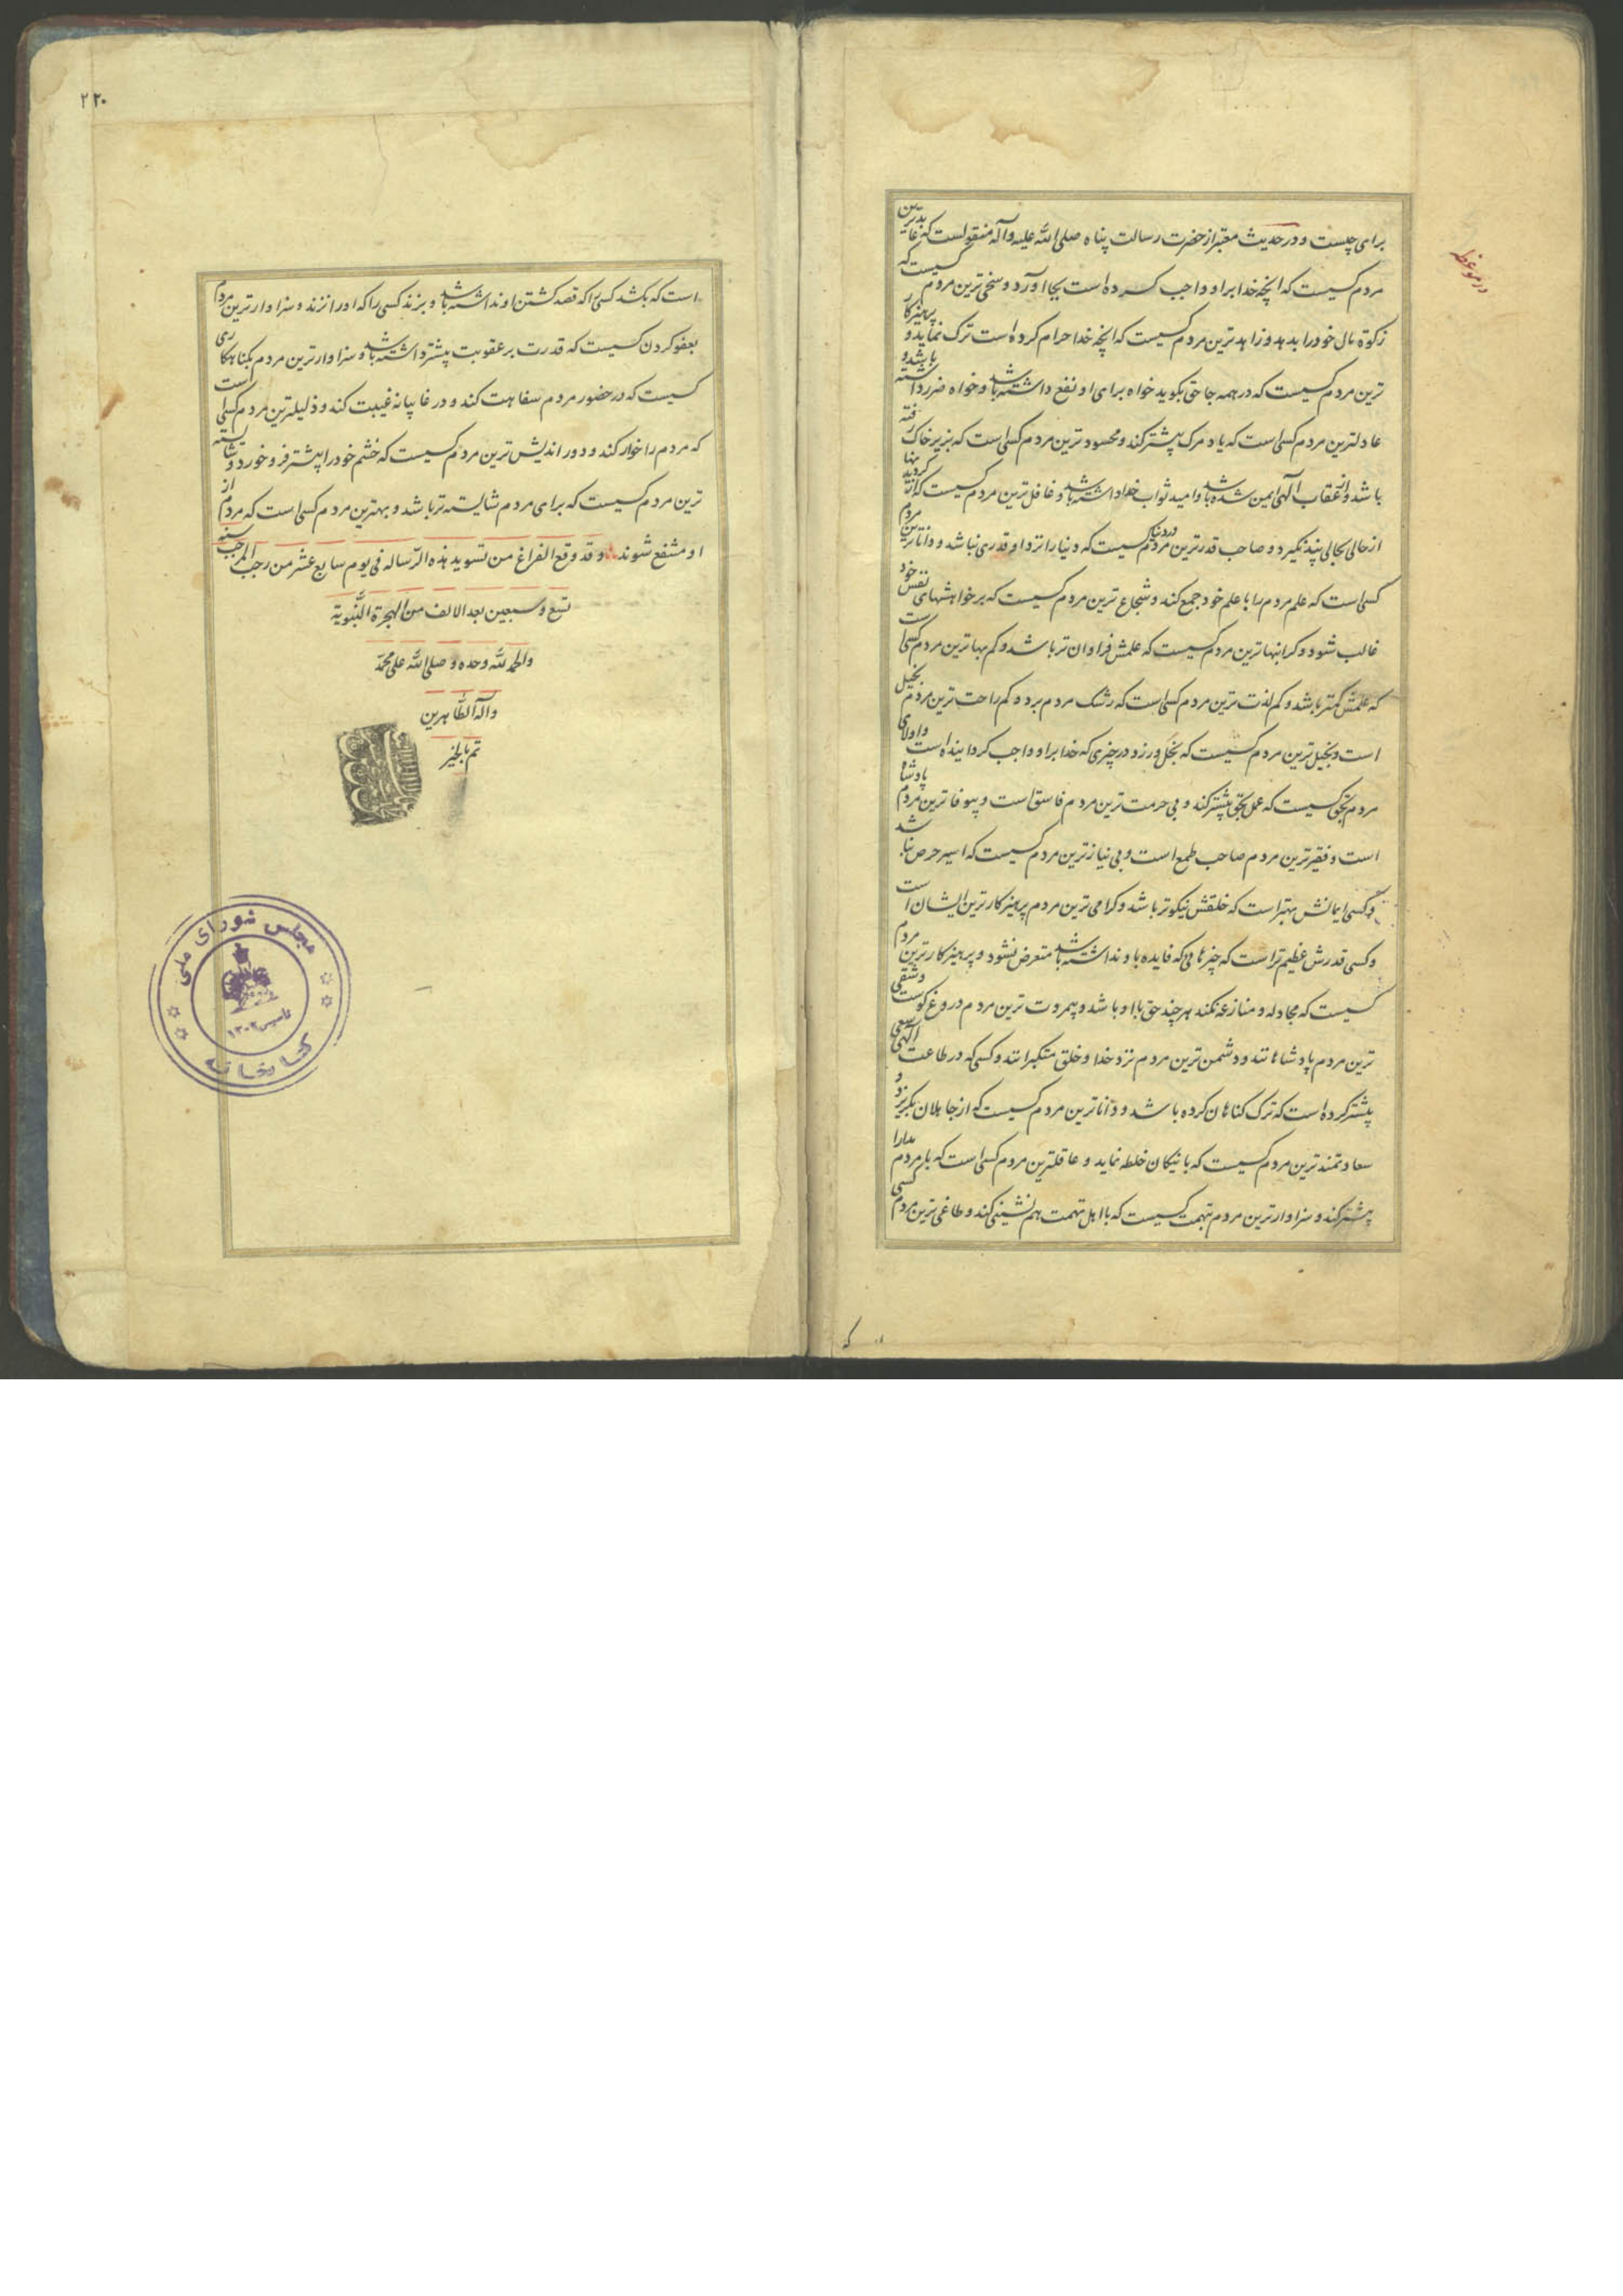 در موعظه
برای چیست و در حدیث معتبر از حضرت رسالت پناه صلی الله علیه وآله منقولست که عابدترین
مردم کسیست که آنچه خدا بر او واجب کرده است بجا آورد و سخی ترین مردم کسیست که
زکوة مال خود را بدهد و زاهدترین مردم کسیست که آنچه خدا حرام کرده است ترک نماید و پرهیزکار
ترین مردم کسیست که در همه جا حق بگوید خواه برای او نفع داشته باشد و خواه ضرر داشته باشد و
عادلترین مردم کسی است که یاد مرک بیشتر کند و محسودترین مردم کسی است که بزیر خاک رفته
باشد و از عقاب الهی ایمن شده باشد و امید ثواب خدا داشته باشد و غافل ترین مردم کسیست که از
از حالی بحالی پند نگیرد و صاحب قدرترین مردم در دنیا کسیست که دنیا را نزد او قدری نباشد و داناترین مردم
کسی است که علم مردم را با علم خود جمع کند و شجاع ترین مردم کسیست که بر خواهشهای نفس خود
غالب شود و گرانبهاترین مردم کسیست که علمش فراوان تر باشد و کم بهاترین مردم کسی است
که علمش کمتر باشد و کم لذت ترین مردم کسی است که رشک مردم برد و کم راحت ترین مردم بخیل
است و بخیل ترین مردم کسیست که بخل ورزد در چیزی که خدا بر او واجب گردانیده است و اولای
مردم بحق کسیست که عمل بحق بیشتر کند و بی حرمت ترین مردم فاسق است و بیوفاترین مردم پادشاه
است و فقیرترین مردم صاحب طمع است و بی نیازترین مردم کسیست که اسیر حرص نباشد
و کسی ایمانش بهتر است که خلقش نیکوتر باشد و گرامی ترین مردم پرهیزکارترین ایشان است
و کسی قدرش عظیم تر است که چیزهایی که فایده باو نداشته باشد متعرض نشود و پرهیزکارترین مردم
کسیست که مجادله و منازعه نکند هر چند حق با او باشد و بیمروت ترین مردم دروغ گوست و شقی
ترین مردم پادشاهانند و دشمن ترین مردم نزد خدا و خلق متکبرانند و کسی که در طاعت الهی سعی
بیشتر کرده است که ترک گناهان کرده باشد و داناترین مردم کسیست که از جاهلان بگریزد و
سعادتمندترین مردم کسیست که با نیکان خلطه نماید و عاقلترین مردم کسی است که با مردم مدارا
بیشتر کند و سزاوارترین مردم بتهمت کسیست که با اهل تهمت هم نشینی کند و طاغی ترین مردم کسی
۲۲۰
است که بکشد کسی را که قصد کشتن او نداشته باشد و بزند کسی را که او را نزند و سزاوارترین مردم
بعفو کردن کسیست که قدرت بر عقوبت بیشتر داشته باشد و سزاوارترین مردم بگناهکاری
کسیست که در حضور مردم سفاهت کند و در غایبانه غیبت کند و ذلیلترین مردم کسی است
که مردم را خوار کند و دور اندیش ترین مردم کسیست که خشم خود را بیشتر فرو خورد و شایسته
ترین مردم کسیست که برای مردم شایسته تر باشد و بهترین مردم کسی است که مردم از
او منتفع شوند و قد وقع الفراغ من تسوید هذه الرسالة فی یوم سابع عشر من رجب المرجب سنه
تسع و سبعین بعد الالف من الهجرة النبویة
والحمد لله وحده وصلی الله علی محمد
وآله الطاهرین
تم بالخیر
مجلس شورای ملی
تاسیس ۱۳۰۲
کتابخانه